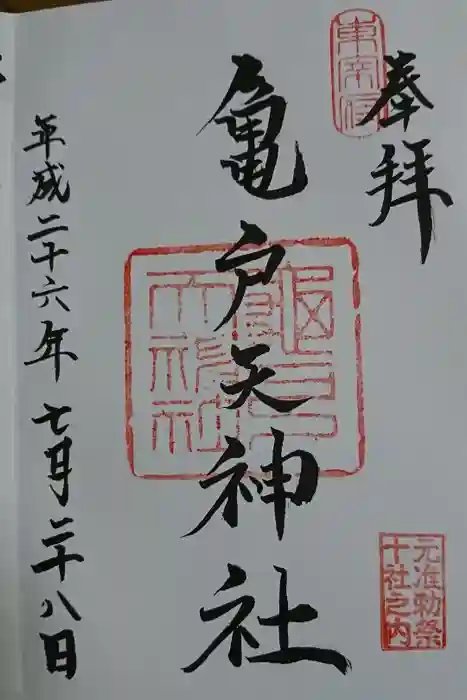 奉拝
東宰府
亀戸天神社
亀戸天神社
元准勅祭
十社之内
平成二十六年七月二十八日